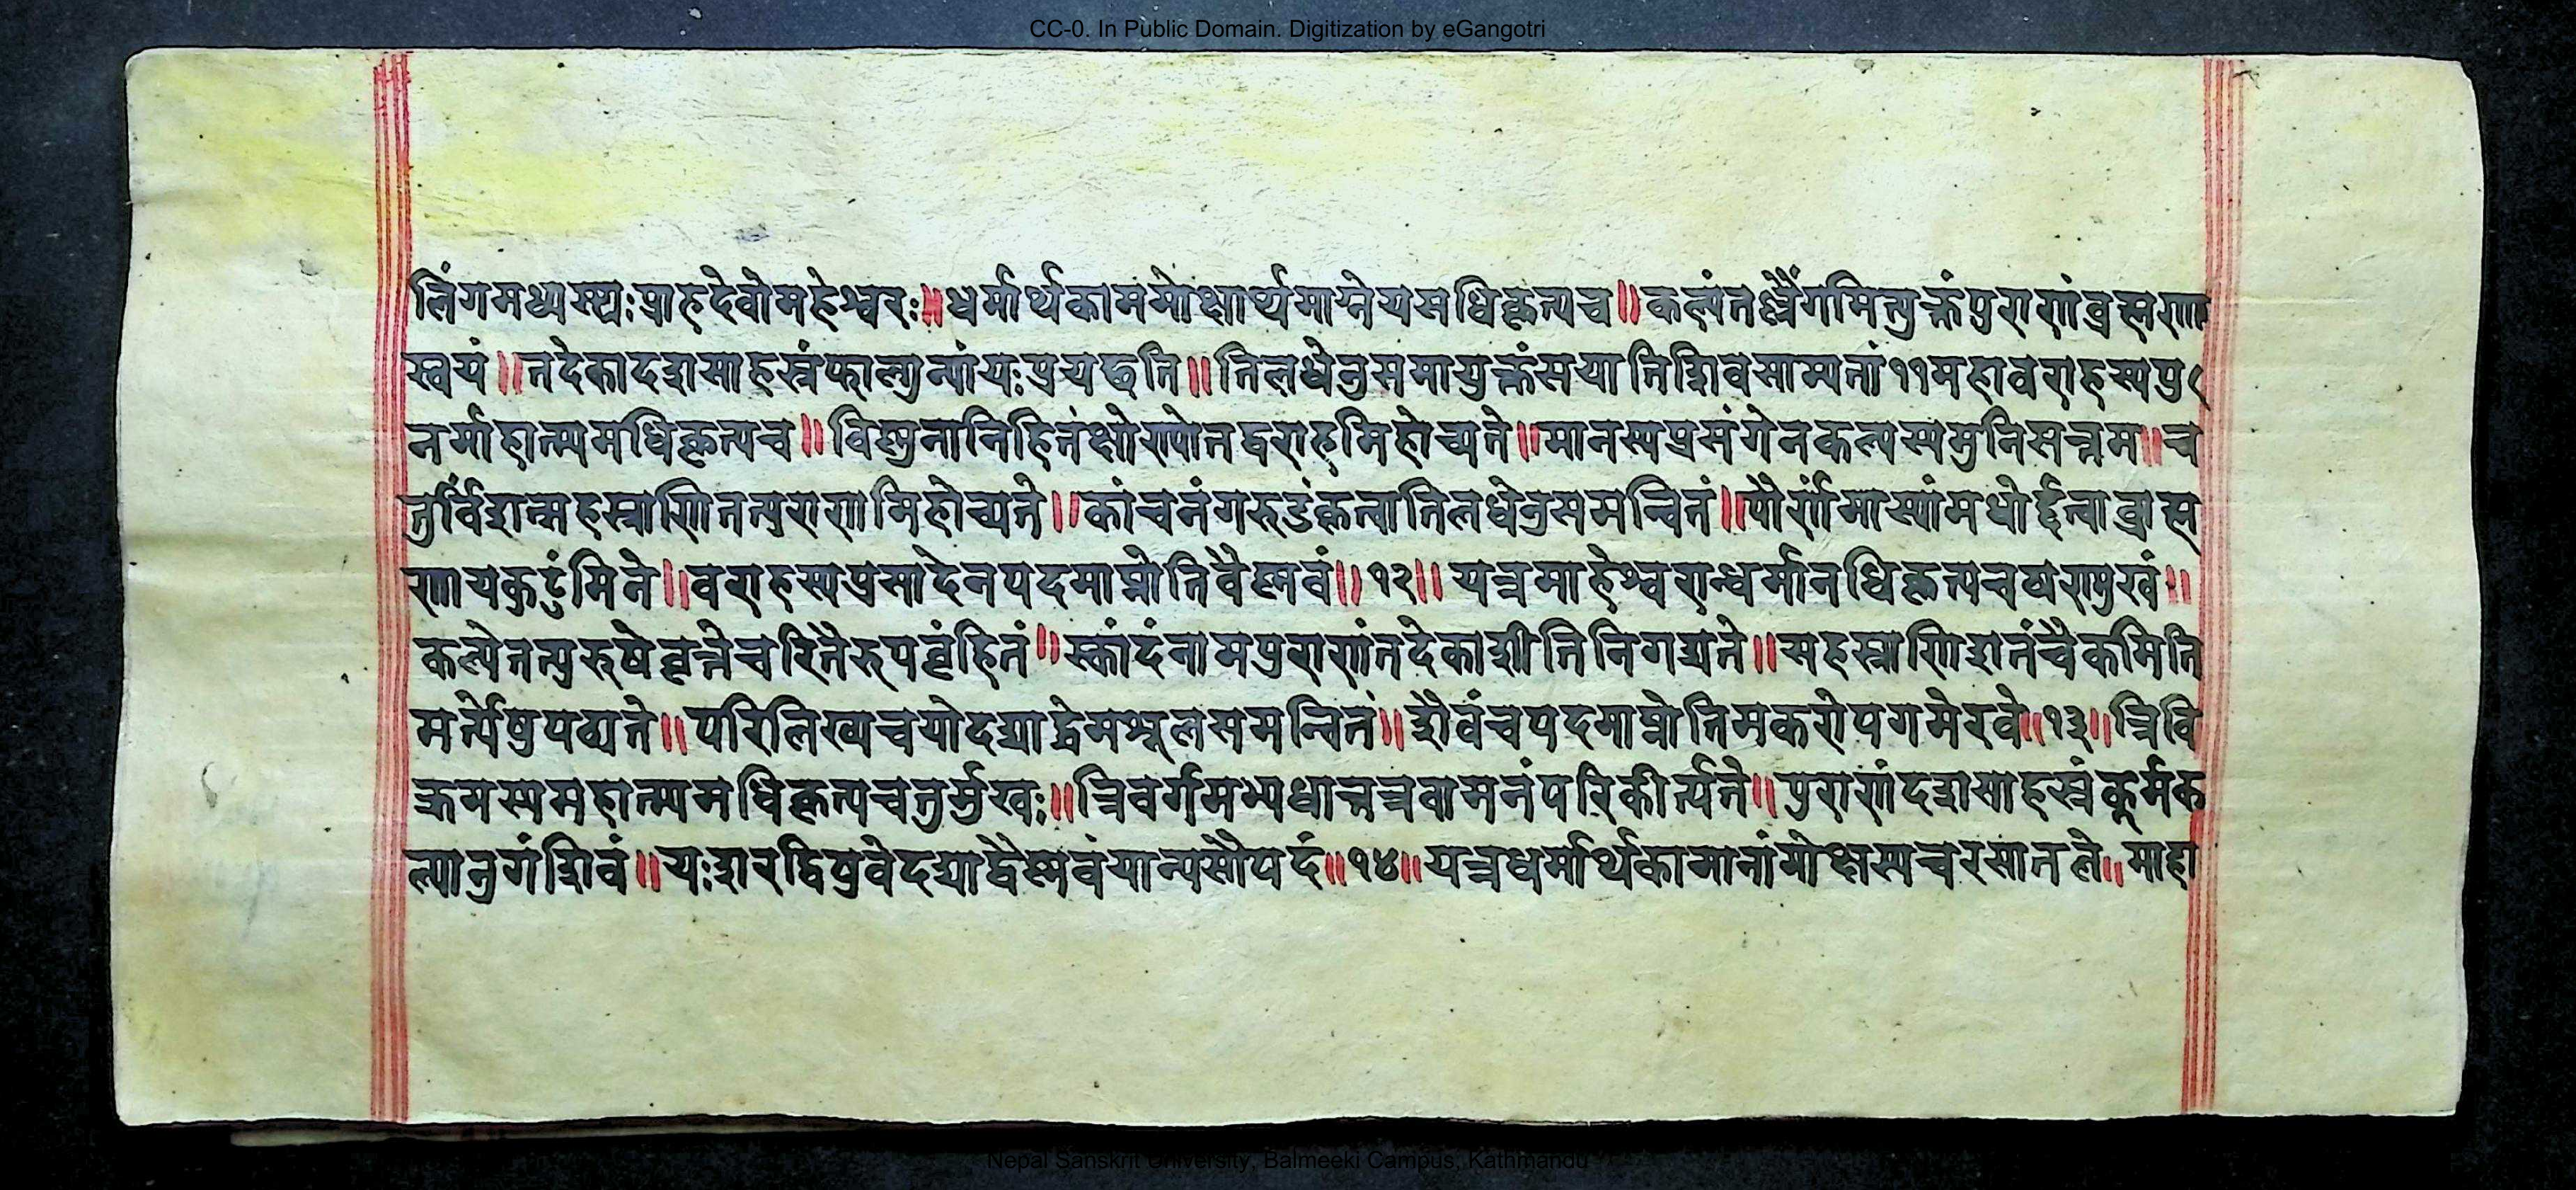 CC-0. In Public Domain. Digitization by eGangotri
लिंगमध्यस्थः प्राह देवो महेश्वरः॥ धर्मार्थकाममोक्षार्थमाग्नेयमधिकृत्य च॥ कल्पं तल्लैंगमित्युक्तं पुराणं ब्रह्मणा
स्वयं॥ तदेकादशसाहस्रं फाल्गुन्यां यः प्रयछति॥ तिलधेनुसमायुक्तं स याति शिवसाम्यतां ११ महावराहस्य पु
नर्माहात्म्यमधिकृत्य च॥ विष्णुनानिहितं क्षोण्यो तद्वराहमिहोच्यते॥ मानस्य प्रसंगेन कल्पस्य मुनिसत्तम॥ च
तुर्विंशत्सहस्राणि तत्पुराणमिहोच्यते॥ कांचनं गरुडं कृत्वा तिलधेनुसमन्वितं॥ पौर्णमास्यां मधोर्द्दत्वा ब्राह्म
णाय कुटुंमिने॥ वराहस्य प्रसादेन पदमाप्नोति वैष्णवं॥ १२॥ यत्र माहेश्वरान्धर्मानधिकृत्य च षण्मुखं॥
कल्पे तत्पुरुषे वृत्ते चरितैरुपबृंहितं॥ स्कांदं नाम पुराणं तदेकाशीति निगद्यते॥ सहस्राणि शतं चैकमिति
मर्त्येषु पठ्यते॥ परिलिख्य च यो दद्याद्धेमशूलसमन्वितं॥ शैवं च पदमाप्नोति मकरोपगमे रवे॥ १३॥ त्रिवि
क्रमस्य महात्म्यमधिकृत्य चतुर्मुखः॥ त्रिवर्गमभ्यधात्तत्र वामनं परिकीर्त्यते॥ पुराणं दशसाहस्रं कूर्मक
ल्पानुगं शिवं॥ यः शरद्विषुवे दद्याद्वैष्णवं यात्यसौ पदं॥ १४॥ यत्र धर्मार्थकामानां मोक्षस्य च रसातले॥ माहा
Nepal Sanskrit University, Balmeeki Campus, Kathmandu